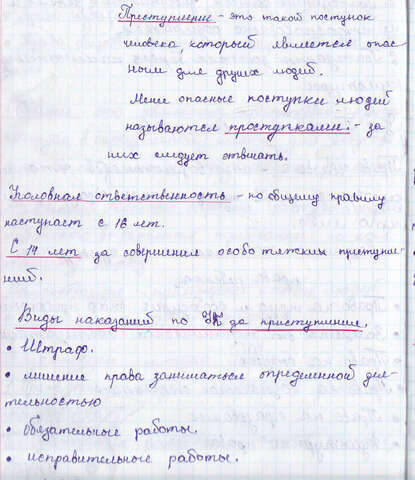 Преступление - это такой поступок
человека, который является опас
ным для других людей.
Мене опасные поступки людей
называются проступками: - за
них следует отвечать.
Уголовная ответственность - по общему правилу
наступает с 16 лет.
С 14 лет за совершения особо тяжких преступле-
ний.
Виды наказаний по УК за приступления.
• Штраф.
• лишение права заниматься определенной дея-
тельностью
• обязательные работы.
• исправительные работы.